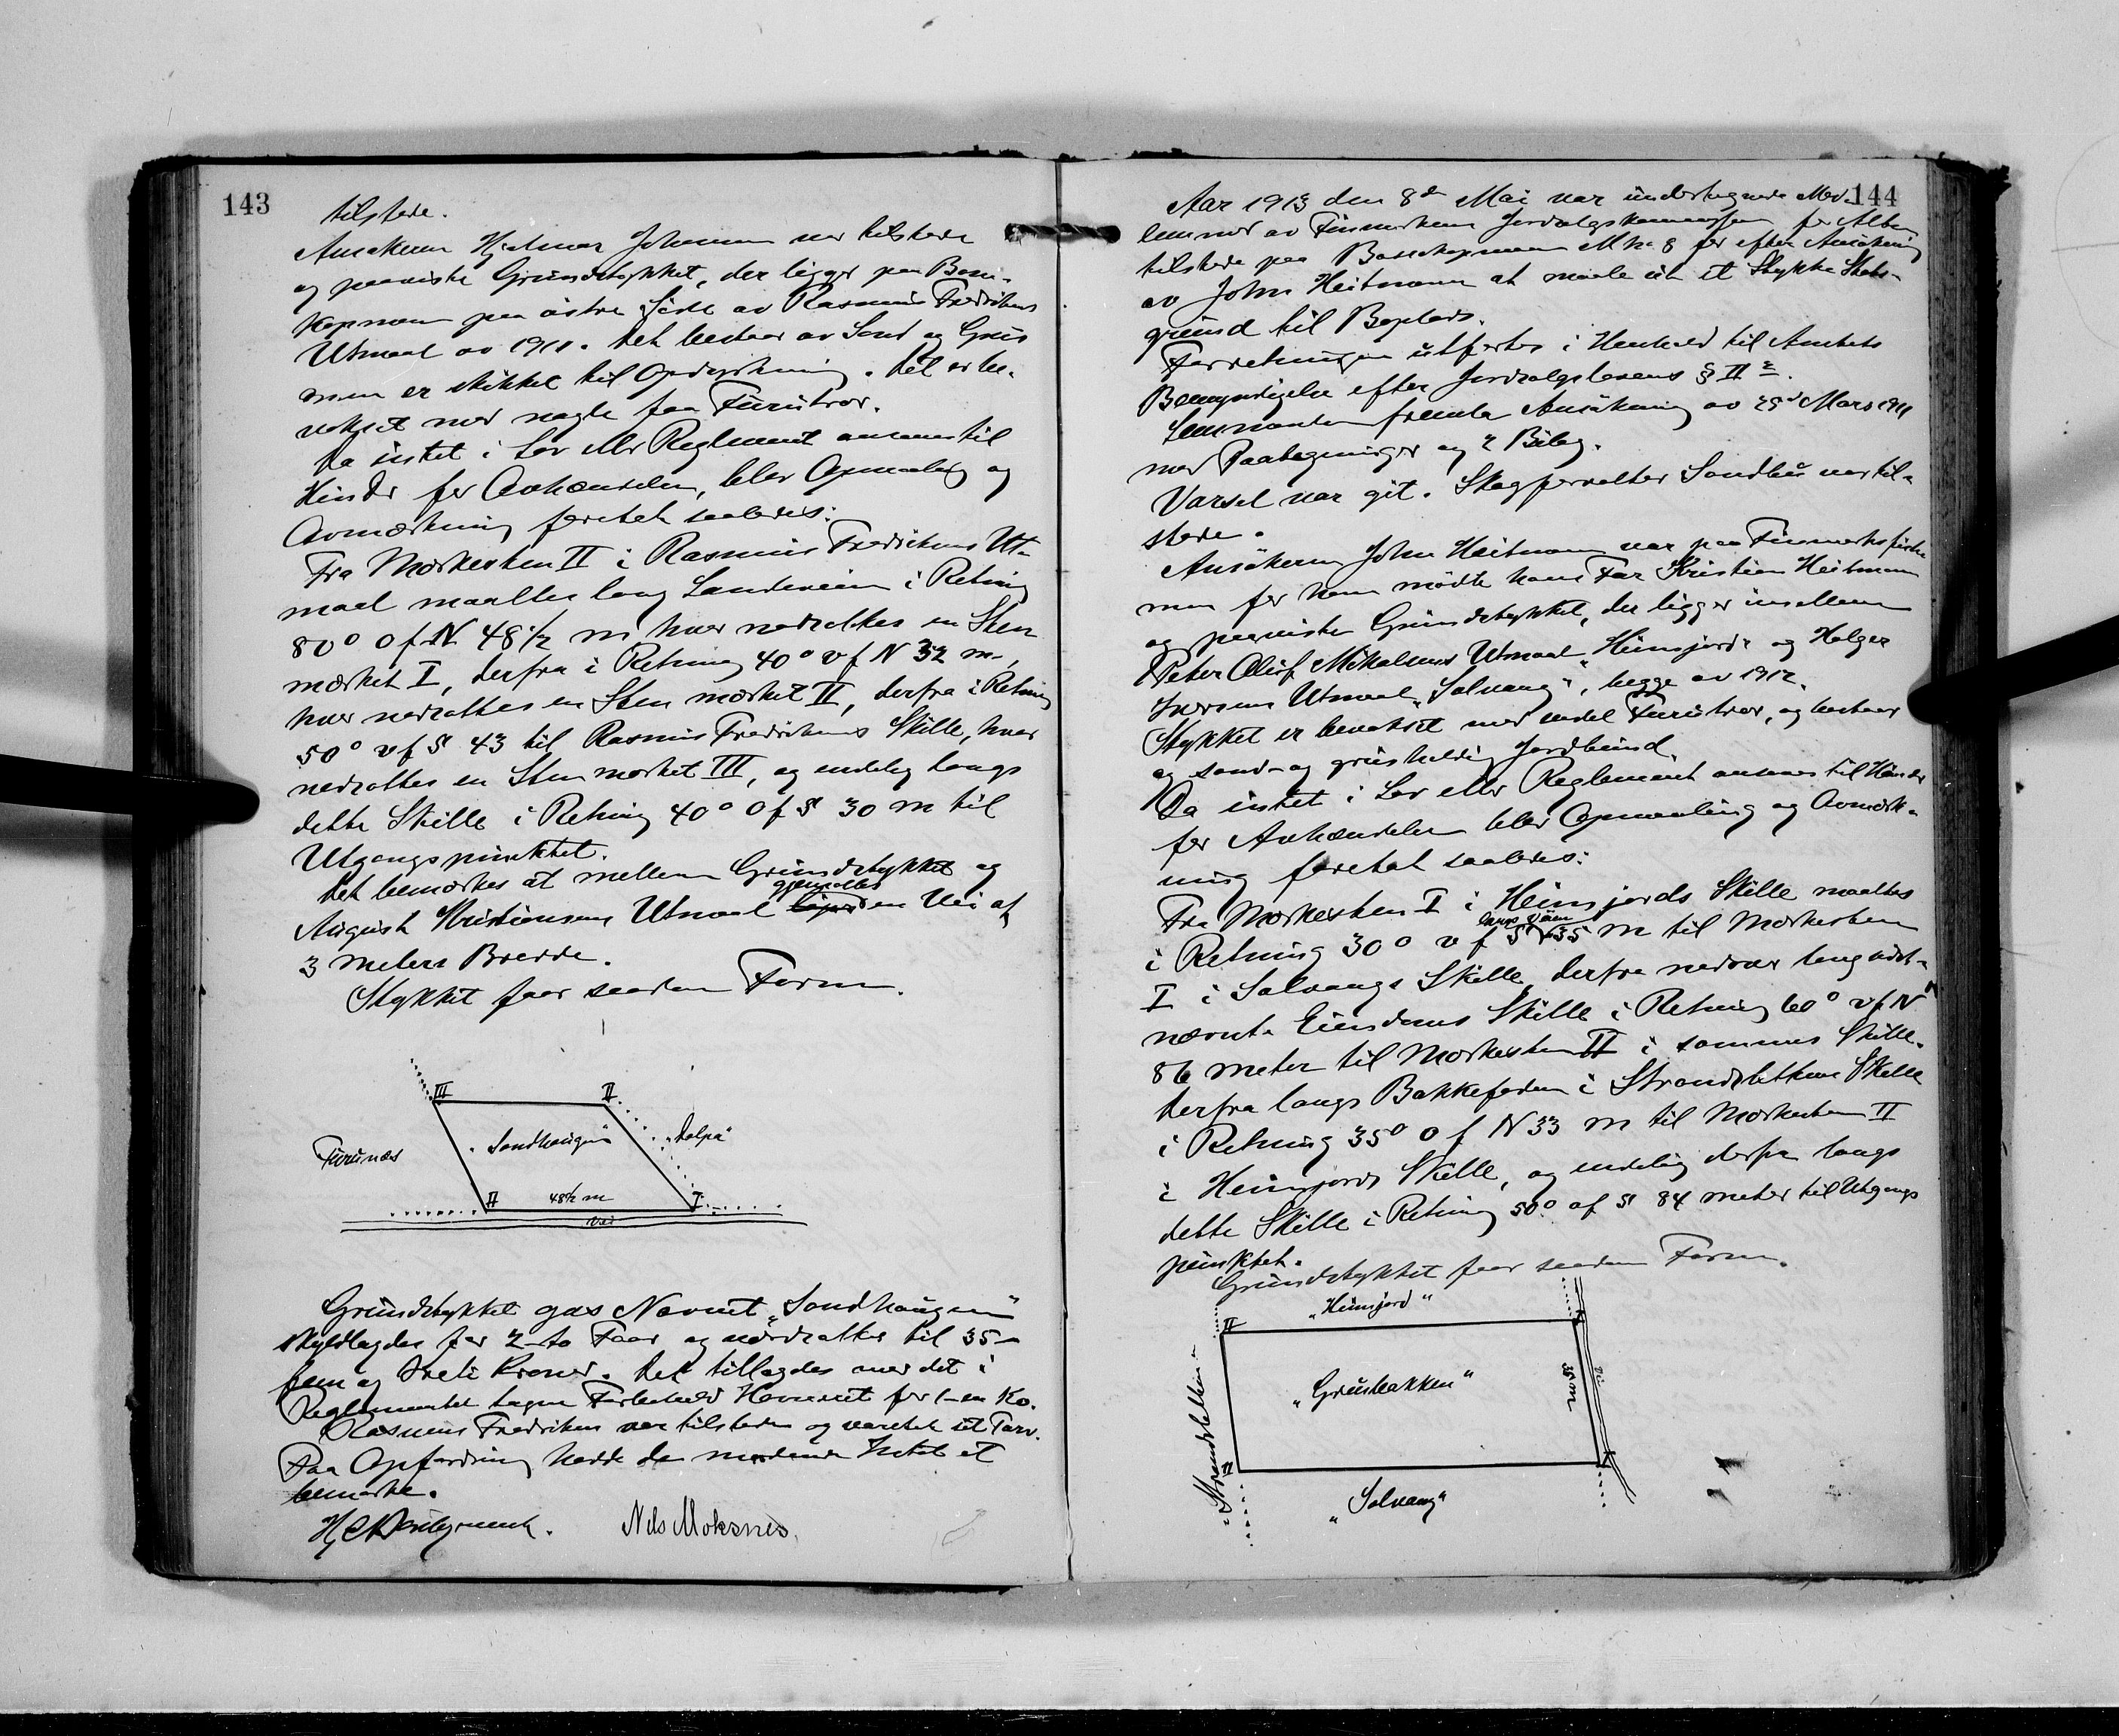 143
tilstede.
Ansøkeren Hjalmar Johansen var tilstede
og paaviste Grundstykket, der ligger paa Bosse-
kopmoen paa østre Side av Rasmus Fredriksens
Utmaal av 1911. Det bestaar av Sand og Grus
men er skikket til Opdyrkning. Det er be-
vokset med nogle faa Furutrær.
Da intet i Lov eller Reglement ansaaes til
Hinder for Avhændelsen, blev Opmaaling og
Avmerkning foretat saaledes:
Fra Merkesten II i Rasmus Fredriksens Ut-
maal maaltes langs Landeveien i Retning
80° O f N 48½ m hvor nedsattes en Sten
merket I, derfra i Retning 40° v f N 32 m,
hvor nedsattes en Sten merket II, derfra i Retning
50° v f S 43 til Rasmus Fredriksens Skille, hvor
nedsattes en Sten merket III, og endelig langs
dette Skille i Retning 40° O f S 30 m til
Utgangspunktet.
Det bemerkes at mellem Grundstykket og
August Kristiansens Utmaal gjensattes en Vei af
3 meters Bredde.
Stykket faar saadan Form.
III
II
Furunæs
"Sandhaugen"
"Dalpa"
II
48½ m
I
Vei
Grundstykket gaves Navnet "Sandhaugen"
skyldlagdes for 2 - to Faar og værdsattes til 35 -
fem og treti Kroner. Det tillagdes med det i
Reglementet tagne Forbehold Havneret for 1 - en Ko.
Rasmus Fredriksen var tilstede og varetok sit Tarv.
Paa Opfordring hadde de mødende Intet at
bemerke.
Nils Moksnes.
144
Aar 1913 den 8de Mai var undertegnede Med-
lemmer av Finmarkens Jordsalgskommission for Alten
tilstede paa Bossekopmoen M. No 8 for efter Ansøkning
av John Heitmann at maale ut et Stykke Stats-
grund til Boplads.
Forretningen utførtes i Henhold til Amtets
Bemyndigelse efter Jordsalgslovens § II 2.
Lensmanden fremla Ansøkning av 29d Mars 1911
med Paategninger og 2 Bilag.
Varsel var git. Skogforvalter Sandhus var til-
stede.
Ansøkeren John Heitmann var paa Finmarksfiske
men for ham mødte hans Far Kristian Heitmann
og paaviste Grundstykket, der ligger imellem
Peter Oluf Mikalsens Utmaal "Heimjord" og Holger
Iversens Utmaal "Solvang", begge av 1912.
Stykket er bevokset med endel Furutrær, og bestaar
og sand- og grusholdig Jordbund.
Da intet i Lov eller Reglement ansaaes til Hinder
for Avhændelsen blev Opmaaling og Avmerk-
ning foretat saaledes:
Fra Merkesten I i Heimjords Skille maaltes
i Retning 30° v f S langs Veien 35 m til Merkesten
I i Solvangs Skille, derfra nedover langs sidst-
nævnte Eiendoms Skille i Retning 60° v f N
86 meter til Merkesten II i sammes Skille,
derfra langs Bakkefoden i Strandslettens Skille
i Retning 35° O f N 33 m til Merkesten II
i Heimjords Skille, og endelig derfra langs
dette Skille i Retning 50° O f S 84 meter til Utgangs
punktet.
Grundstykket faar saadan Form.
"Heimjord"
II
I
"Strandsletten"
"Grusbakken"
35 m
Vei
II
I
"Solvang"